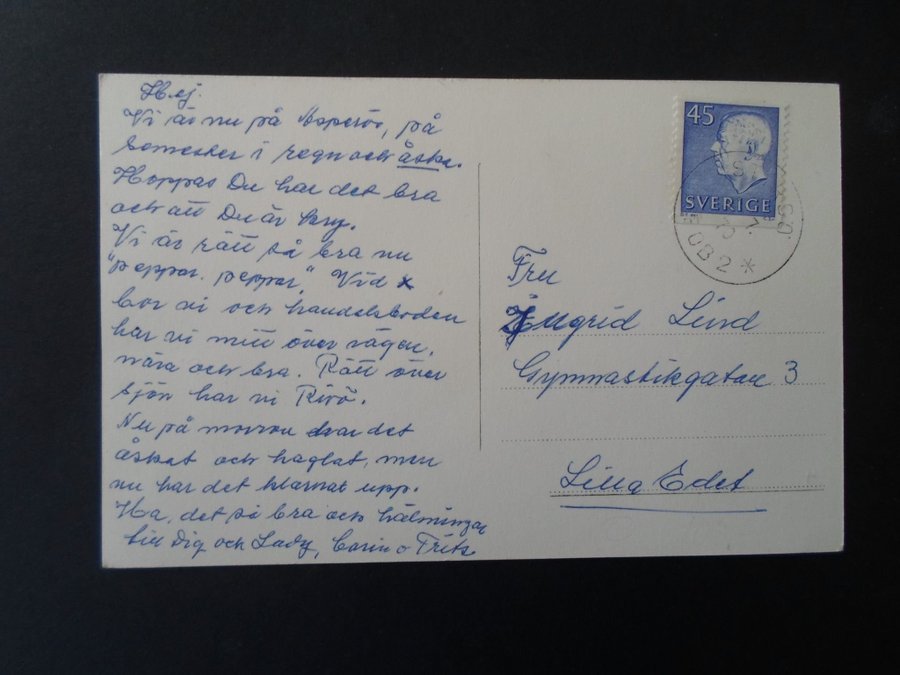 Hej.
Vi är nu på Asperö, på
semester i regn och åska.
Hoppas Du har det bra
och att Du är kry.
Vi är rätt så bra nu
"peppar. peppar." Vid x
bor vi och handelsboden
har vi mitt över vägen,
nära och bra. Rätt över
sjön har vi Rivö.
Nu på morron har det
åskat och haglat, men
nu har det klarnat upp.
Ha, det så bra och hälsningar
till Dig och Lady, Carin o Fritz
45
SVERIGE
UB2*
Fru
Ingrid Lind
Gymnastikgatan 3
Lilla Edet